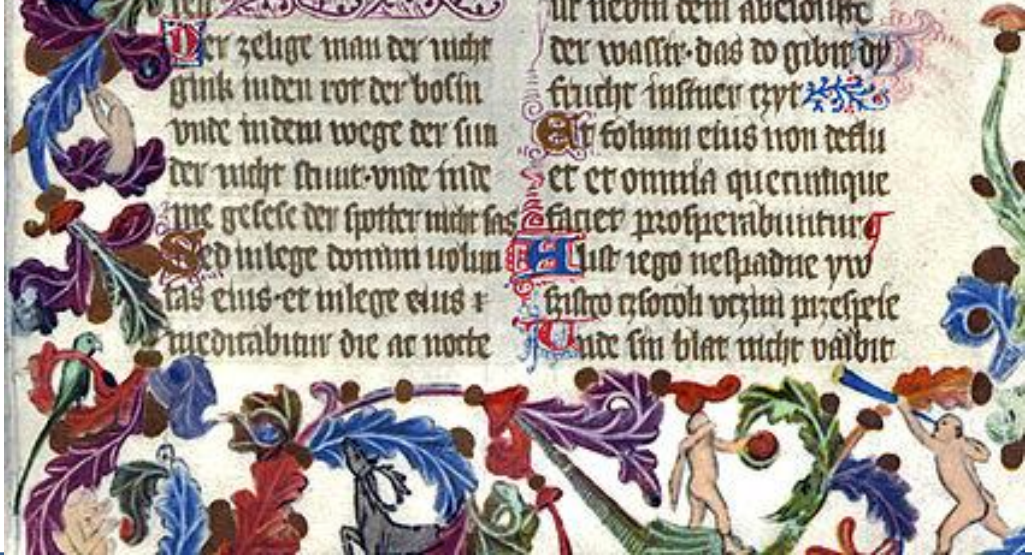 Der zelige man der nicht
gink in den rot der bosin
vnde in dem wege der sun
der nicht stunt·vnde in de
me gesese der spotter nicht sas
Sed in lege domini uolun
tas eius·et in lege eius
meditabitur die ac nocte
nebin dem abeloufte
der wassir·das do gibit dy
frucht in siner czyt
Et folium eius non deflu
et et omnia quecumque
faciet prosperabuntur
A list iego nespadne yw
szistko czsocoli vczini przespeie
Unde sin blat nicht valbit